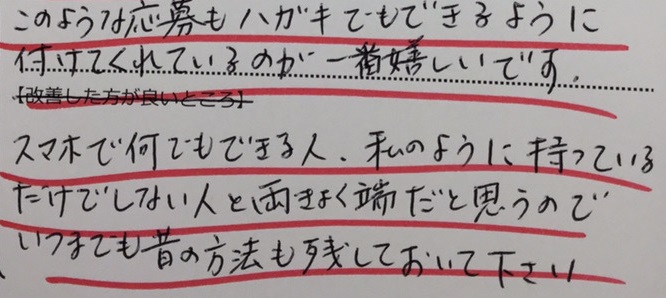 このような応募もハガキでもできるように
付けてくれているのが一番嬉しいです.
【改善した方が良いところ】
スマホで何でもできる人、私のように持っている
だけでしない人と両きょく端だと思うので
いつまでも昔の方法も残しておいて下さい